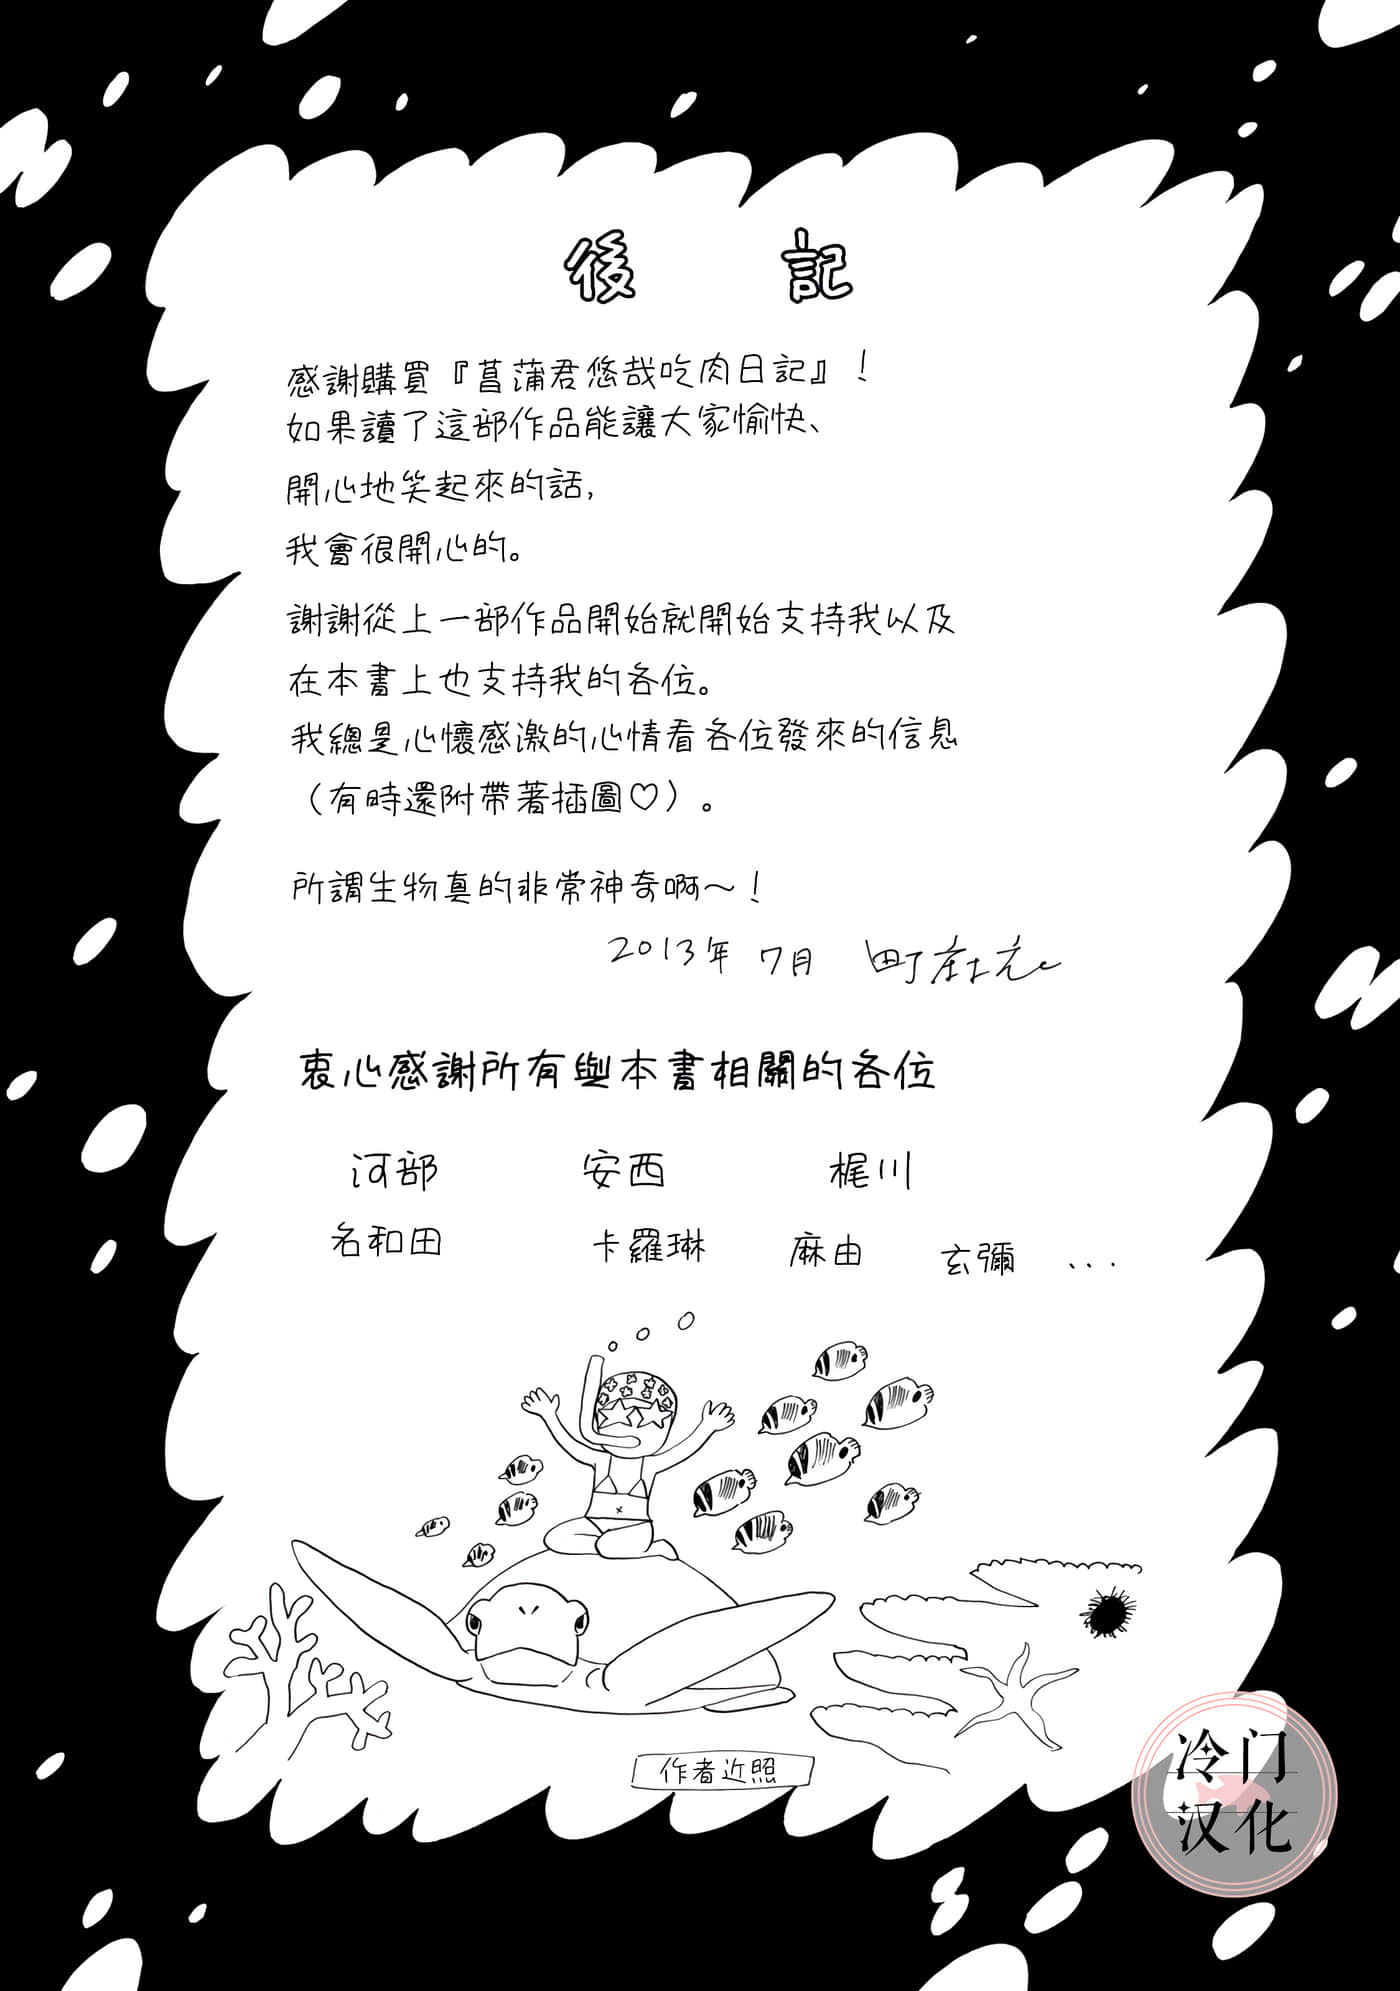 後 記
感謝購買『菖蒲君悠哉吃肉日記』！
如果讀了這部作品能讓大家愉快、
開心地笑起來的話，
我會很開心的。
謝謝從上一部作品開始就開始支持我以及
在本書上也支持我的各位。
我總是心懷感激的心情看各位發來的信息
（有時還附帶著插圖♡）。
所謂生物真的非常神奇啊～！
2013年 7月
衷心感謝所有與本書相關的各位
河部 安西 梶川
名和田 卡羅琳 麻由 玄彌 ...
作者近照
冷门
汉化